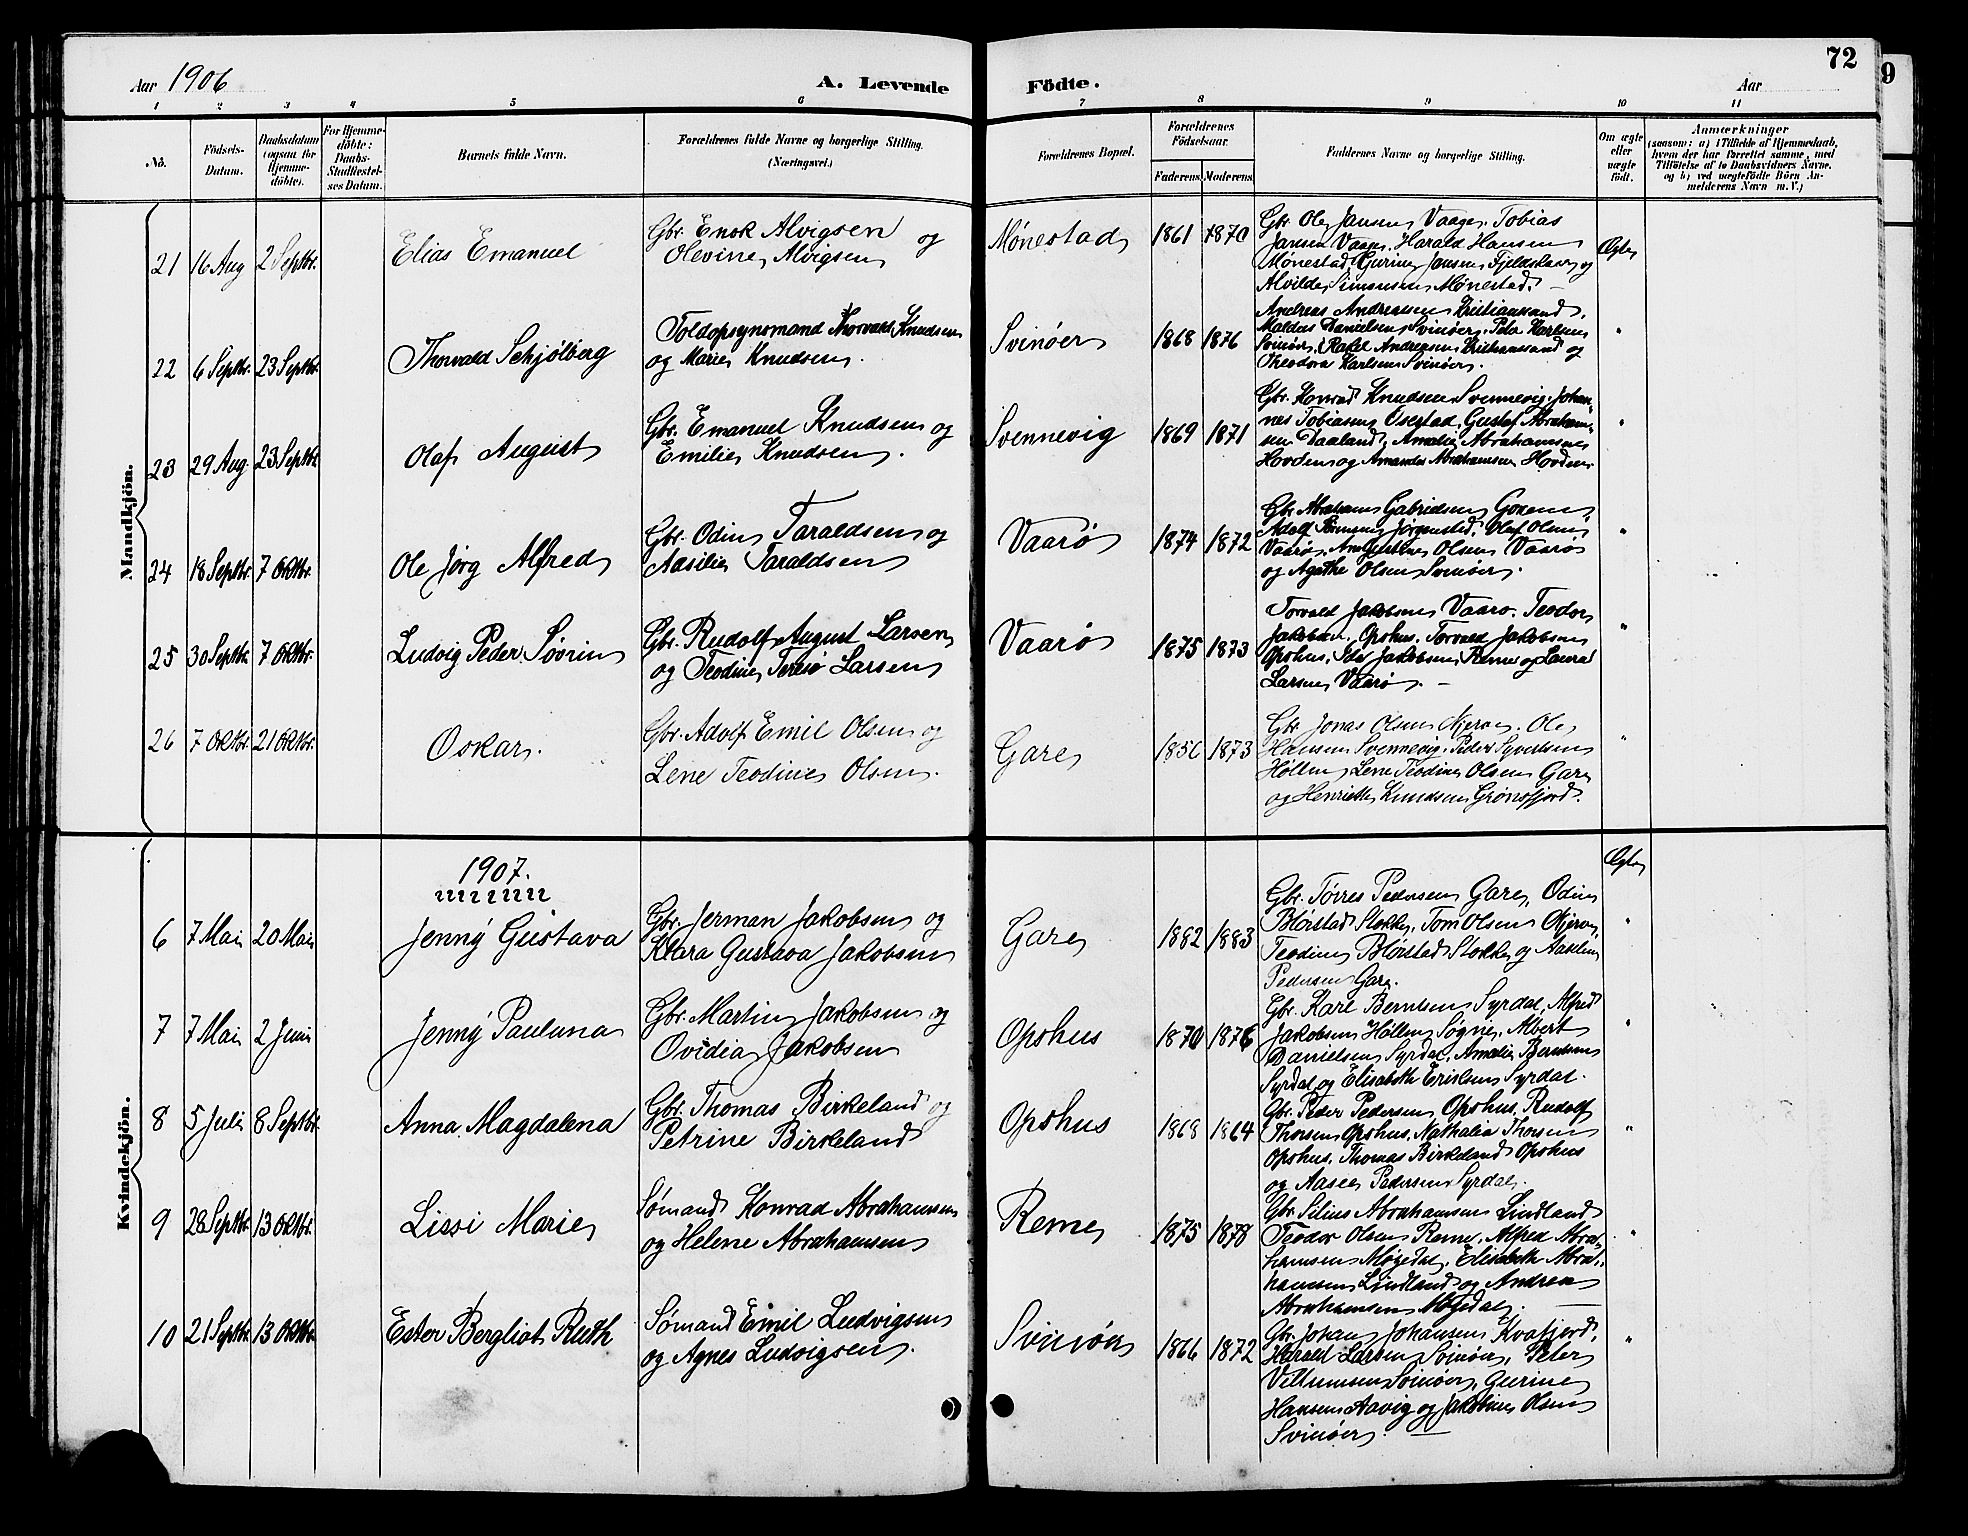 72
9
Aar 1906
A. Levende
Födte.
Aar
1 2 3 4 5 6 7 8 9 10 11
No.
Födsels-
Datum.
Daabsdatum
(ogsaa for
Hjemme-
döbte).
For Hjemme-
döbte:
Daabs-
Stadfæstel-
ses Datum.
Barnets fulde Navn.
Forældrenes fulde Navne og borgerlige Stilling.
(Næringsvei.)
Forældrenes Bopæl.
Forældrenes
Födselsaar.
Faderens. Moderens.
Faddernes Navne og borgerlige Stilling.
Om ægte
eller
uægte
födt.
Anmærkninger
(saasom: a) i Tilfælde af Hjemmedaab,
hvem der har forrettet samme, med
Tilföielse af to Daabsvidners Navne,
og b) ved uægtefödte Börn An-
melderens Navn m. V.)
Mandkjön.
21 16 Aug 2 Septbr. Elias Emanuel
Gbr. Enok Alvigsen og
Olevine Alvigsen
Mønestad 1861 1870
Gbr. Ole Jansen Vaage, Tobias
Jansen Vaage, Harald Hansen
Mønestad, Gurine Jansen Fjeldskaar og
Alvilde Simonsen Mønestad. —
Ægte
22 6 Septbr. 23 Septbr. Thorvald Schjölberg
Toldopsynsmand Thorvald Knudsen
og Marie Knudsen.
Svinøer 1868 1876
Andreas Andreassen Kristianssand,
Danielsen Svinøer, Peter Karlsen
Svinøer, Rakel Andreasen Kristianssand og
Theodora Karlsen Svinøer.
"
23 29 Aug. 23 Septbr. Olaf August
Gbr. Emanuel Knudsen og
Emilie Knudsen.
Svennevig 1869 1871
Gbr. Konrad Knudsen Svennevig, Johan-
nes Tobiasen Osestad, Gustaf Abraham-
sen Daaland, Amalie Abrahamsen
Hovden og Amanda Abrahamsen Hovden.
"
24 18 Septbr. 7 Oktbr. Ole Jørg Alfred
Gbr. Odin Taraldsen og
Aasilie Taraldsen
Vaarø 1874 1872
Gbr. Abraham Gabrielsen Goxem,
Adolf Jørgenstad, Olaf Olsen
Vaarø, Olsen Vaarø
og Agathe Olsen Svinøer.
"
25 30 Septbr. 7 Oktbr. Ludvig Peder Søvrin
Gbr. Rudolf August Larsen
og Teodine Larsen
Vaarø 1875 1873
Torvald Jakobsen Vaarø, Teodor
Jakobsen, Opshus, Torvald Jakobsen
Opshus, Ida Jakobsen Reme og Laura
Larsen Vaarø. —
"
26 7 Oktbr. 21 Oktbr. Oskar.
Gbr. Adolf Emil Olsen og
Lene Teodine Olsen.
Gare 1873
Gbr. Jonas Olsen Njerve, Ole
Hansen Svennevig, Peder Syvertsen
Höllen, Lene Teodine Olsen Gare
og Henriette Knudsen Grønsfjord.
"
Kvindekjön.
1907.
Ægte
6 7 Mai 20 Mai Jenny Gustava
Gbr. Jerman Jakobsen og
Klara Gustava Jakobsen
Gare 1882 1883
Gbr. Tørres Pedersen Gare, Odin
Blørstad Stokke, Tom Olsen Njerve,
Teodine Blørstad Stokke og Aaseline
Pedersen Gare.
"
7 7 Mai 2 Juni Jenny Pauluna
Gbr. Martin Jakobsen og
Ovidia Jakobsen
Opshus 1870 1876
Gbr. Karl Berntsen Syrdal, Alfred
Jakobsen Höllen Søgne, Albert
Danielsen Syrdal, Amalie Berntsen
Syrdal og Elisabeth Eriksen Syrdal.
"
8 5 Juli 8 Septbr. Anna Magdalena
Gbr. Thomas Birkeland og
Petrine Birkeland
Opshus 1868 1864
Gbr. Peder Pedersen Opshus, Rudolf
Thorsen Opshus, Nathalia Thorsen
Opshus, Thomas Birkeland Opshus
og Aasee Pedersen Syrdal.
"
9 28 Septbr. 13 Oktbr. Lissi Marie
Sømand Konrad Abrahamsen
og Helene Abrahamsen
Reme 1875 1878
Gbr. Silius Abrahamsen Lindland
Teodor Olsen Reme, Alfred Abra-
hamsen Møgedal, Elisabeth Abra-
hamsen Lindland og Andrea
Abrahamsen Møgedal. —
"
10 21 Septbr. 13 Oktbr. Ester Bergliot Ruth
Sømand Emil Ludvigsen
og Agnes Ludvigsen.
Svinøer 1866 1872
Gbr. Johan Johansen Kvafjord,
Harald Larsen Svinøer, Peter
Vellumsen Svinøer, Gurine
Hansen Aavig og Jakobine Olsen
Svinøer. —
"